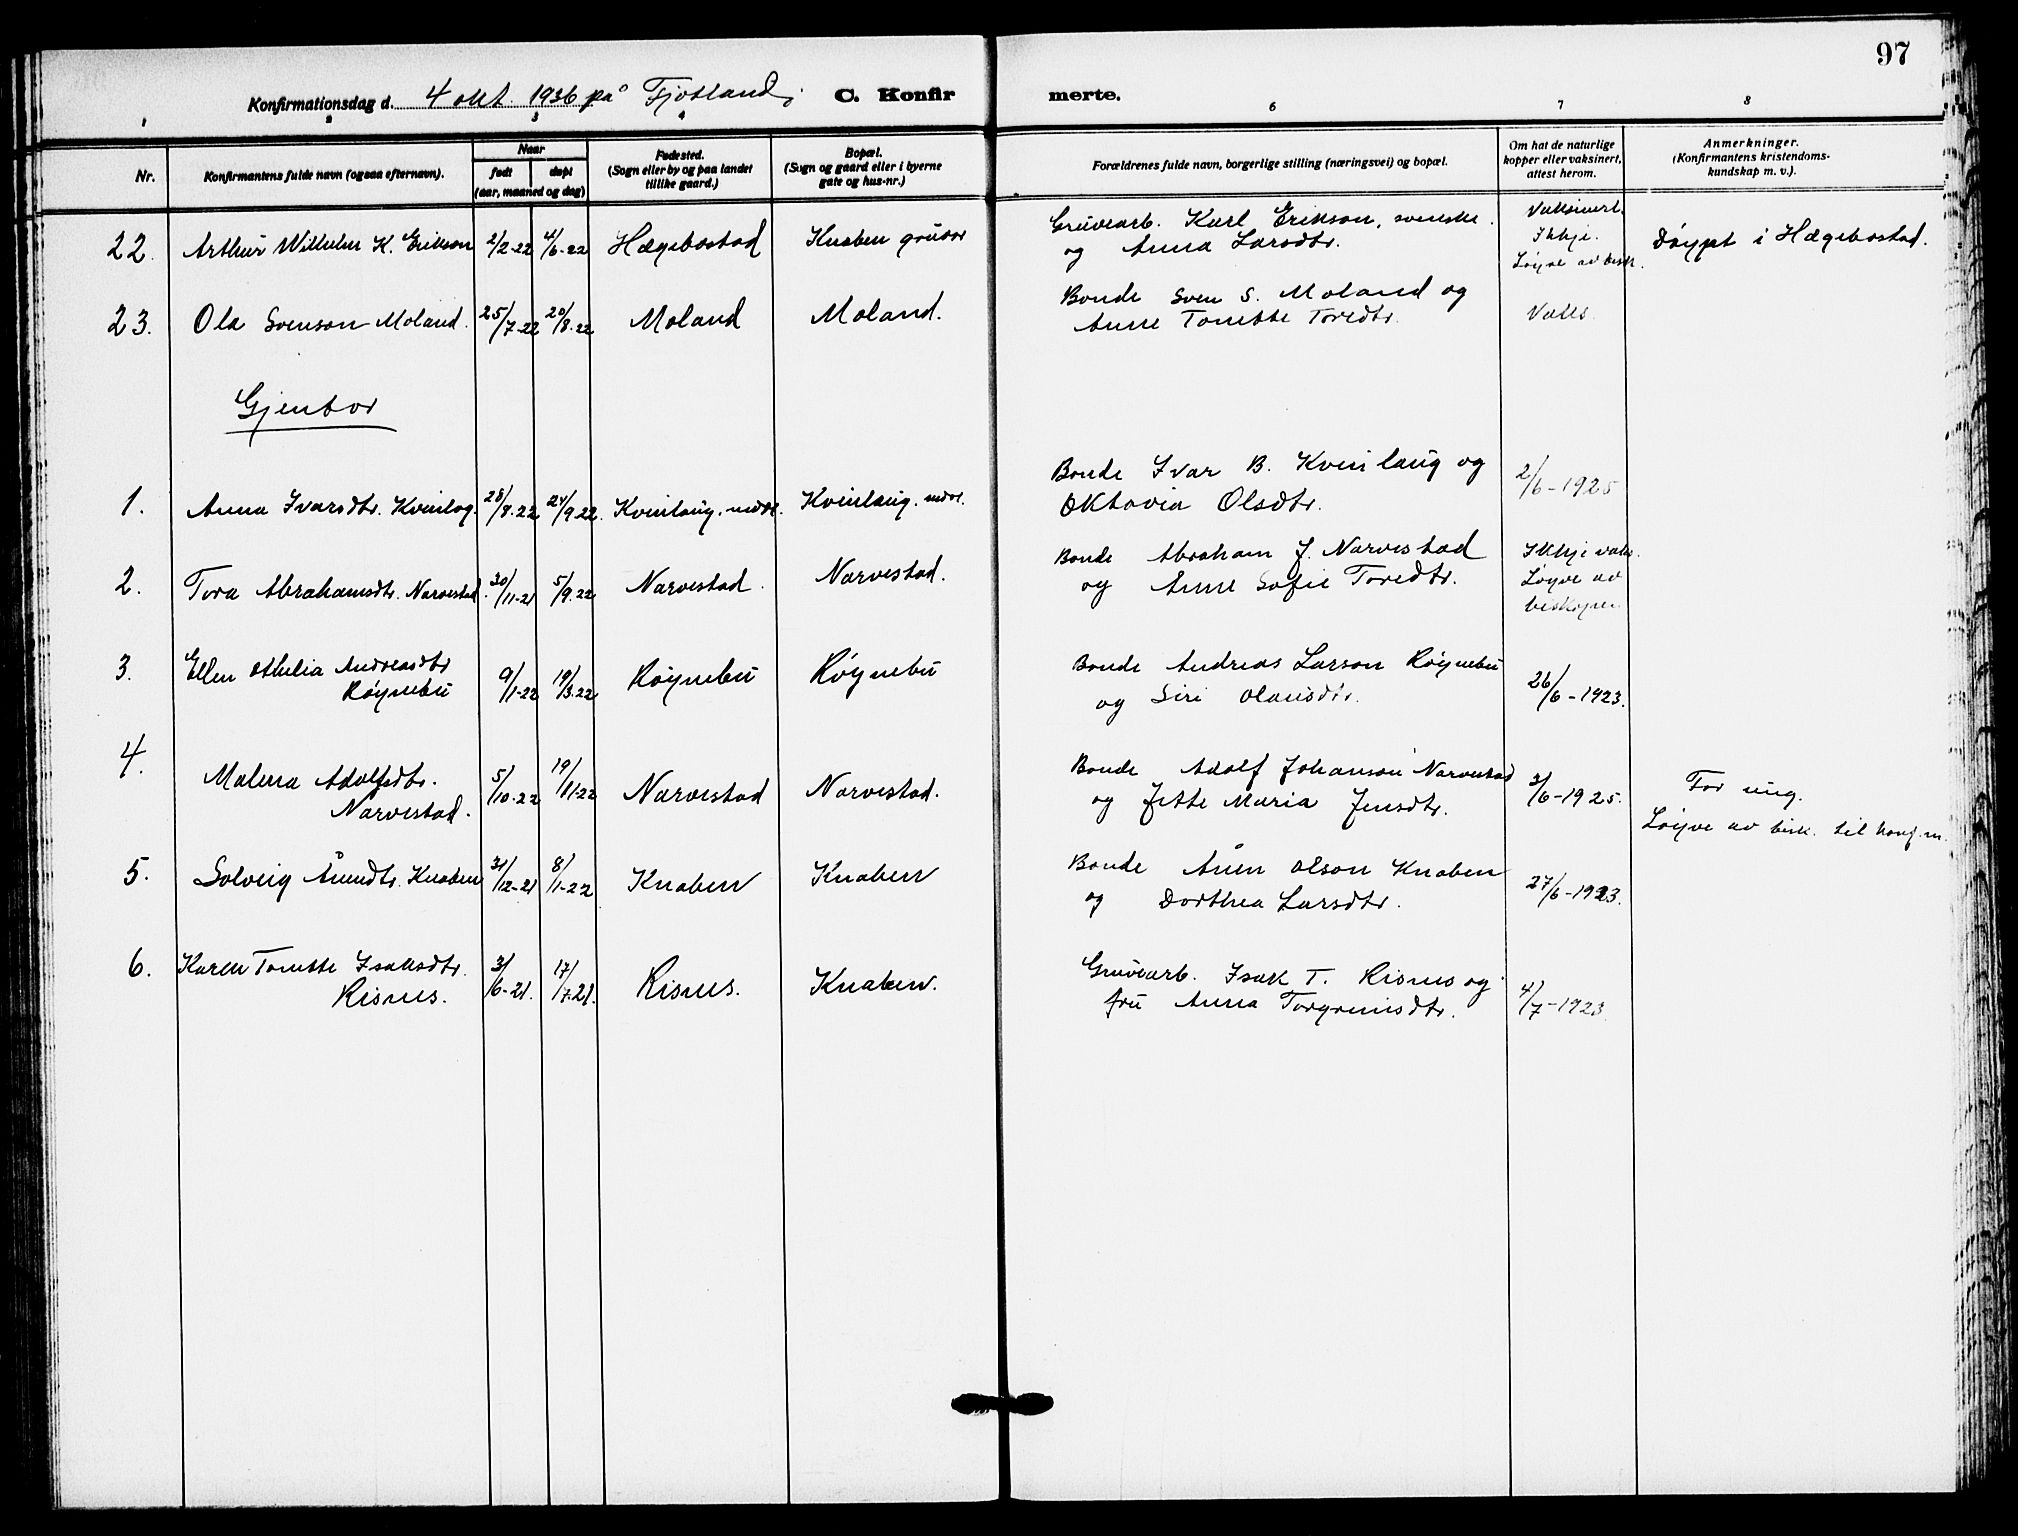 97
Konfirmationsdag d. 4 okt. 1936 på Fjotland; C. Konfirmerte.
1 2 3 4 6 7 8
Nr.
Konfirmantens fulde navn (ogsaa efternavn).
Naar
født
døpt
(aar, maaned og dag)
Fødested.
(Sogn eller by og paa landet
tillike gaard.)
Bopæl.
(Sogn og gaard eller i byerne
gate og hus-nr.)
Forældrenes fulde navn, borgerlige stilling (næringsvei) og bopæl.
Om hat de naturlige
kopper eller vaksinert,
attest herom.
Anmerkninger.
(Konfirmantens kristendoms-
kundskap m. v.).
22. Arthur Wilhelm K. Erikson 2/2-22 4/6-22 Hægebostad Knaben gruver
Gruvearb. Karl Erikson, svenske.
og Anna Larsdtr.
Vaksinert.
Ikkje.
Løyve av bisk.
Døypt i Hægebostad.
23. Ola Svenson Moland. 25/7-22 20/8-22 Moland Moland.
Bonde Sven S. Moland og
Anne Tomette Toredtr.
Vaks.
Gjentor
1. Anna Ivarsdtr. Kvinlog. 28/8-22 24/9-22. Kvinlaug, nedre. Kvinlaug, nedre.
Bonde Ivar B. Kvinlaug og
Oktavia Olsdtr.
2/6-1925
2. Tora Abrahamsdtr. Narvestad. 30/11-21 5/9-22 Narvestad. Narvestad.
Bonde Abraham J. Narvestad
og Anne Sofie Toredtr.
Ikkje vaks.
Løyve av
biskopen
3. Ellen Othelia Andreasdtr
Røynebu 9/1-22 19/3-22 Røynebu Røynebu
Bonde Andreas Larson Røynebu
og Siri Olausdtr.
26/6-1923.
4. Malena Adolfsdtr.
Narvestad. 5/10-22 19/11-22 Narvestad Narvestad.
Bonde Adolf Johanson Narvestad
og Jette Maria Jensdtr.
3/6-1925.
For ung.
Løyve av bisk. til konf.n.
5. Solveig Åmundtr. Knaben 31/12-21 8/1-22 Knaben Knaben
Bonde Åmen Olson Knaben
og Dorthea Larsdtr.
27/6-1923.
6. Karen Tomette Isaksdtr.
Risnes. 3/6-21. 17/7-21. Risnes. Knaben.
Gruvearb. Isak T. Risnes og
fru Anna Torgrimsdtr.
4/7-1923